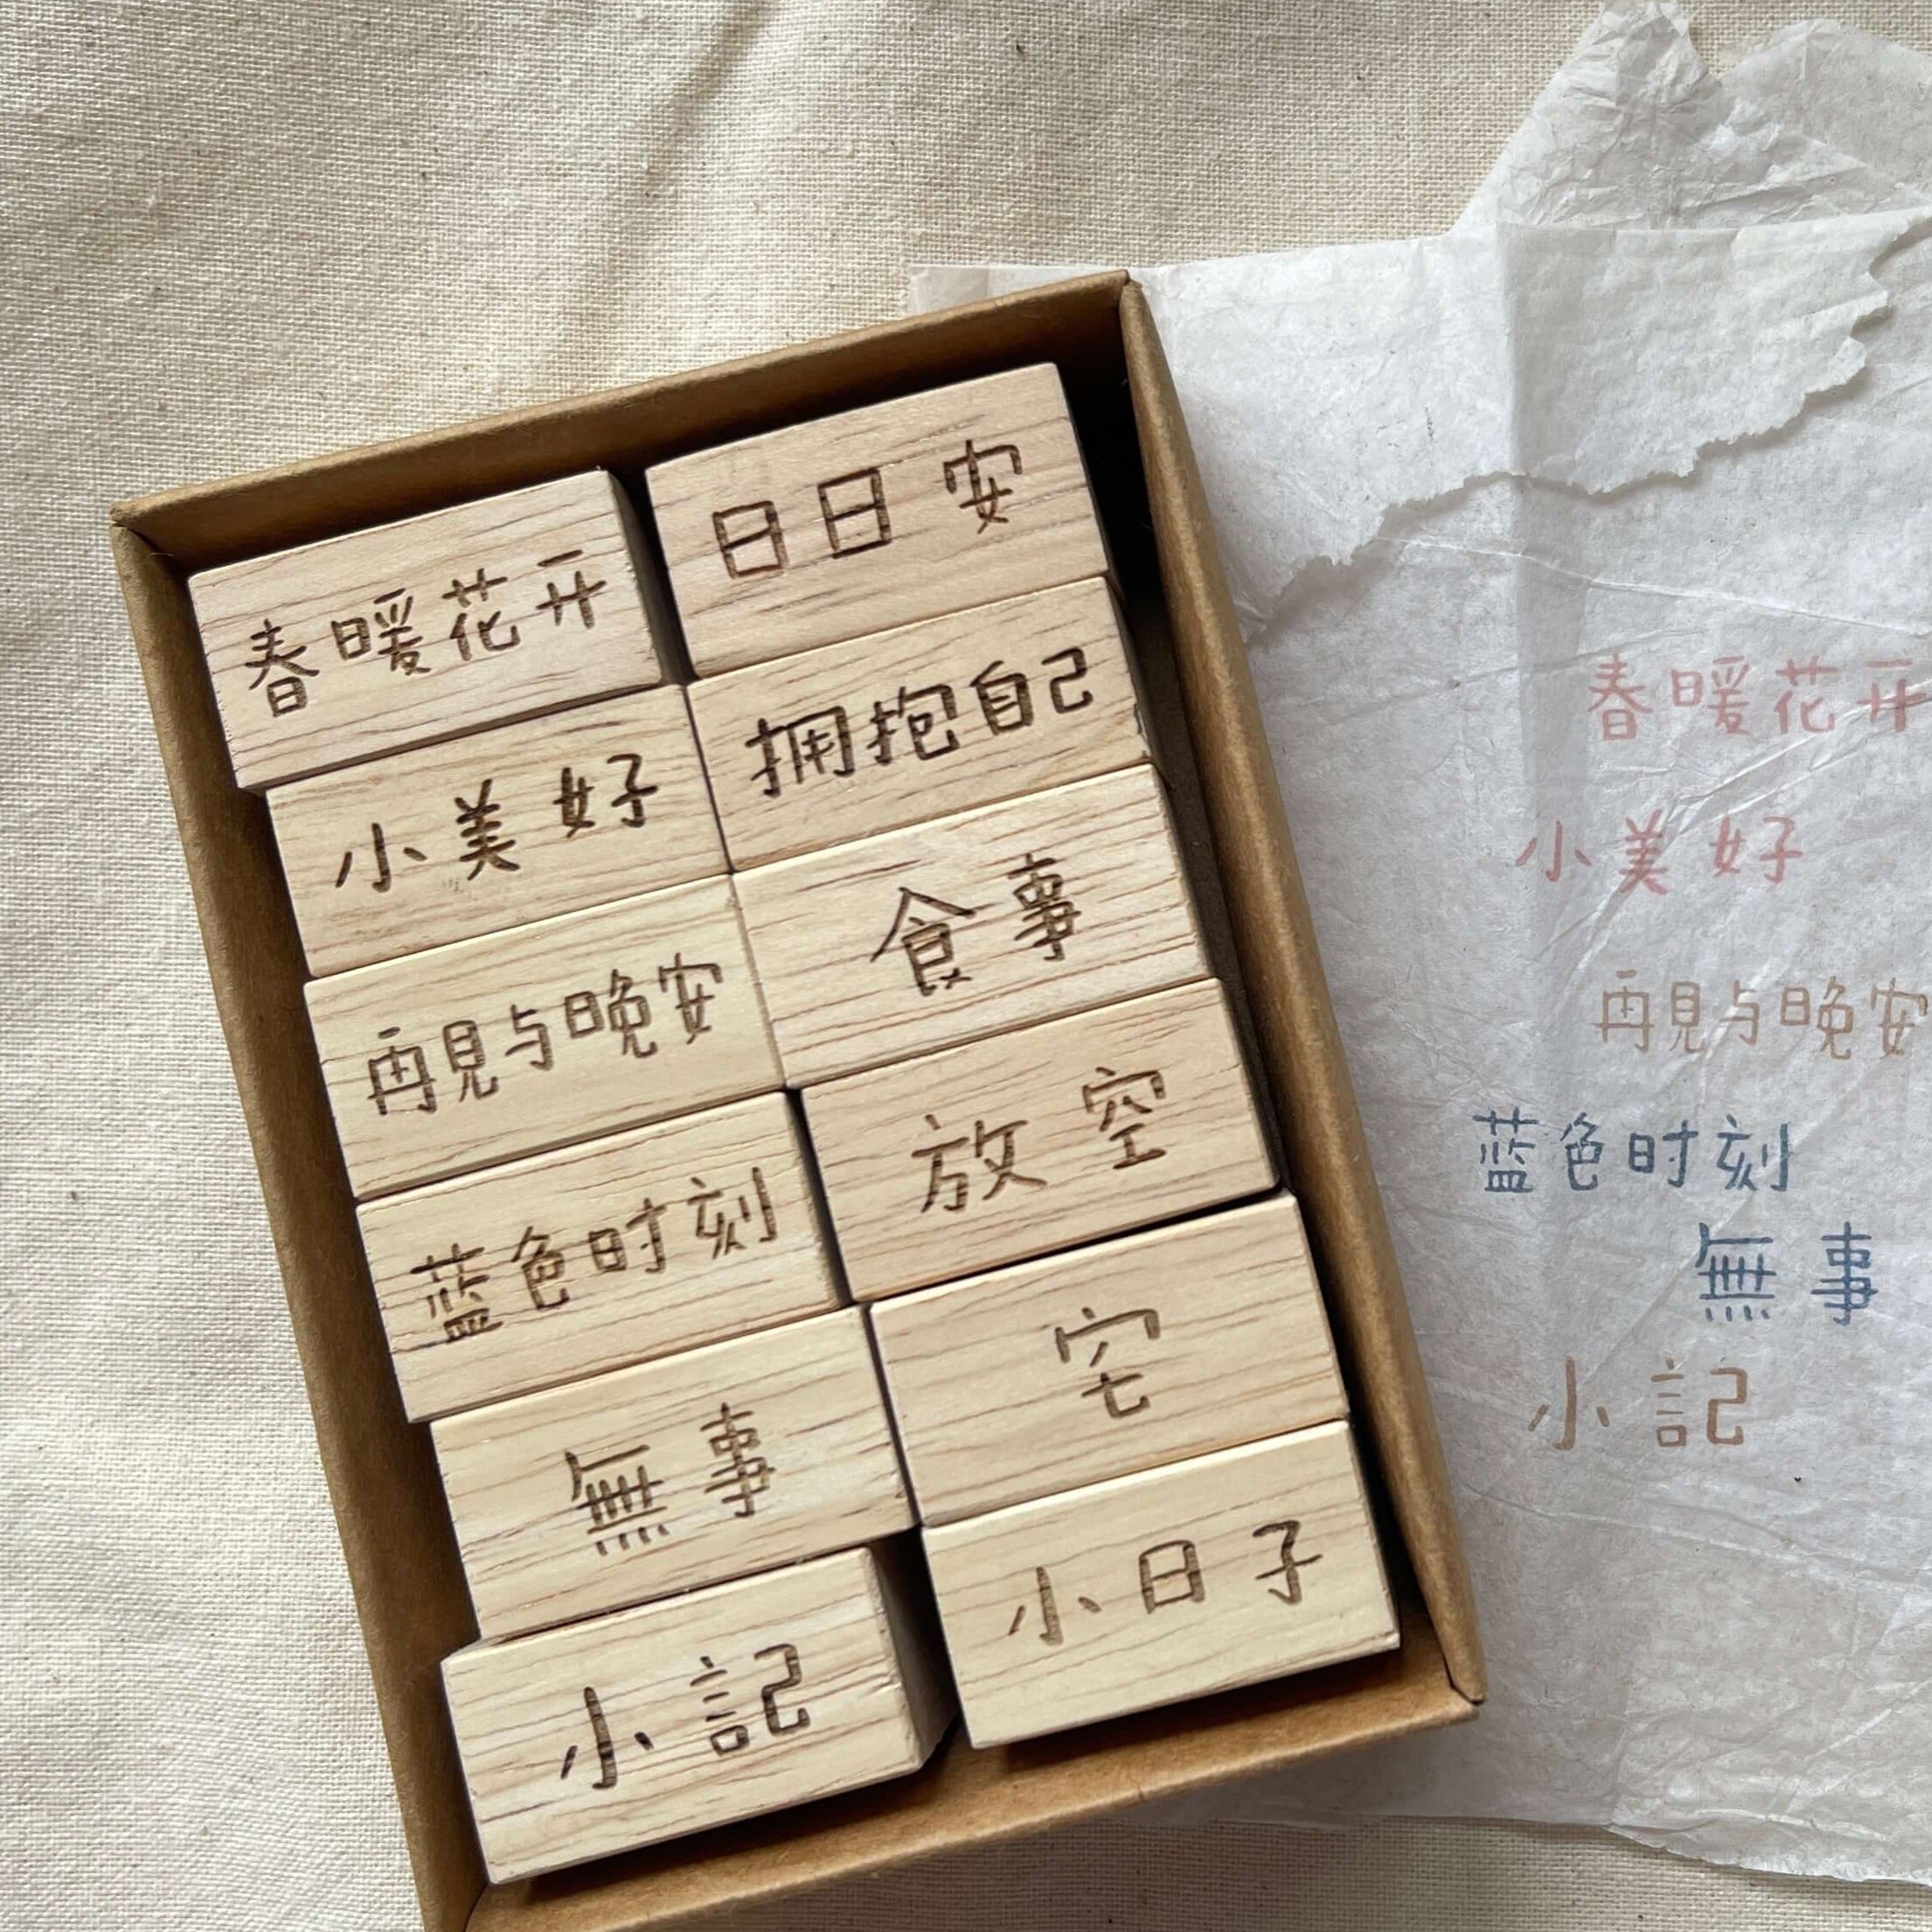 春暖花开
小美好
再見与晚安
蓝色时刻
無事
小記
日日安
拥抱自己
食事
放空
宅
小日子
春暖花开
小美好
再見与晚安
蓝色时刻
無事
小記